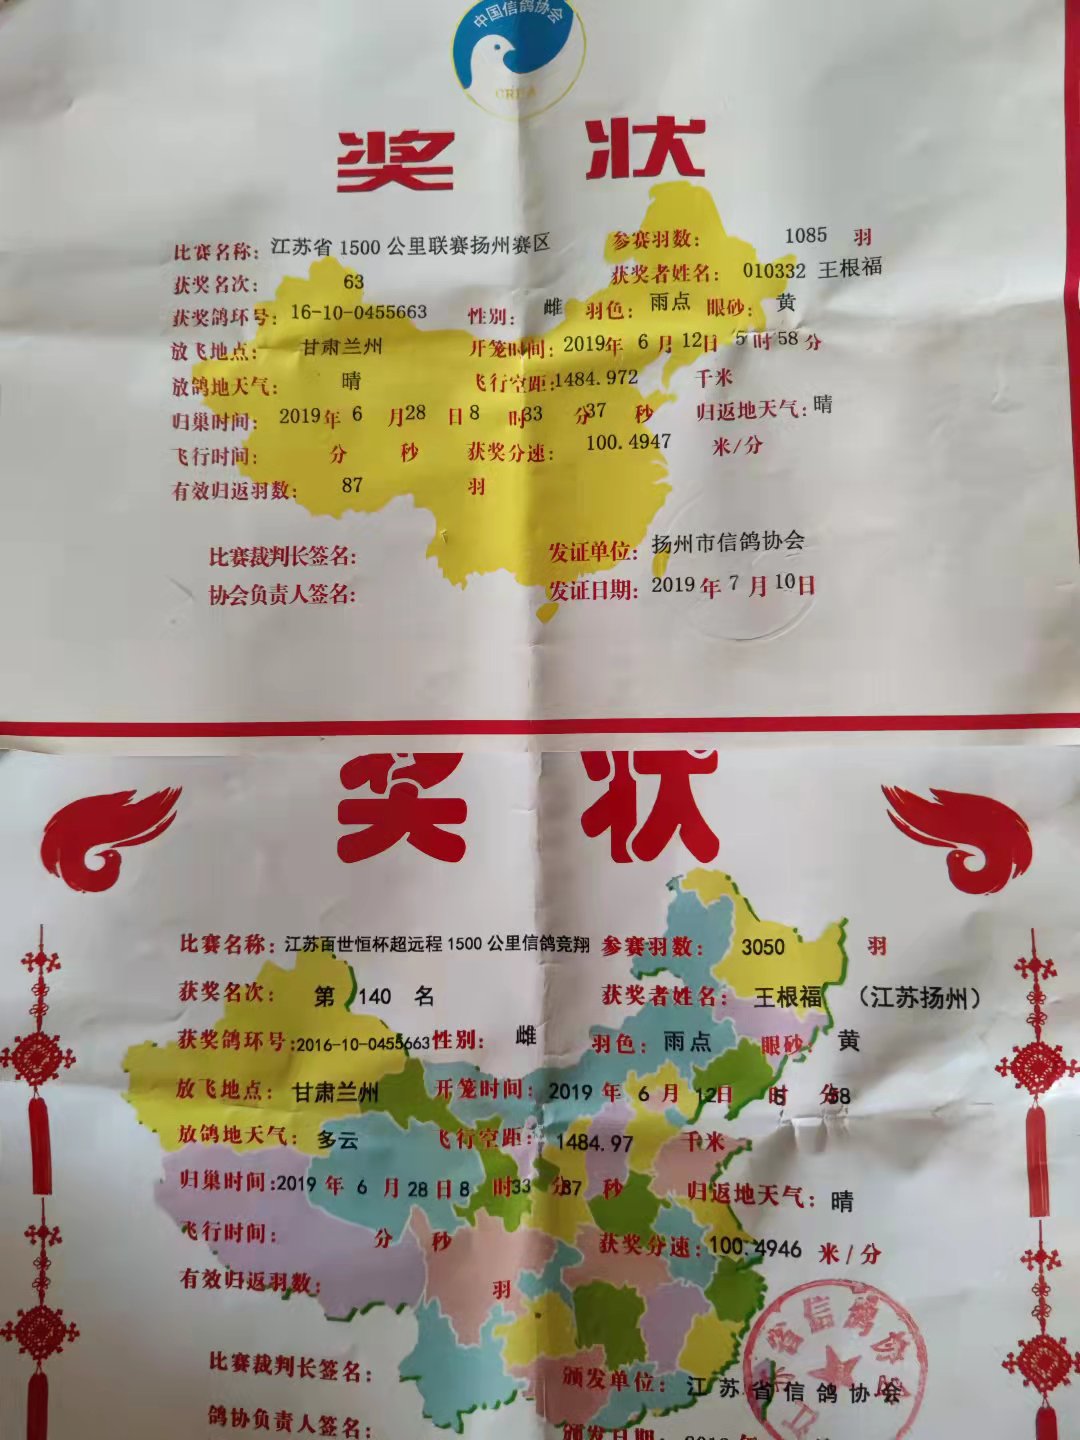 中国信鸽协会
CRPA
奖 状
比赛名称: 江苏省 1500 公里联赛扬州赛区 参赛羽数: 1085 羽
获奖名次: 63 获奖者姓名: 010332 王根福
获奖鸽环号: 16-10-0455663 性别: 雌 羽色: 雨点 眼砂: 黄
放飞地点: 甘肃兰州 开笼时间: 2019年 6 月 12日 5 时 58 分
放鸽地天气: 晴 飞行空距: 1484.972 千米
归巢时间: 2019年 6 月28 日 8 时33 分37 秒 归返地天气: 晴
飞行时间: 分 秒 获奖分速: 100.4947 米/分
有效归返羽数: 87 羽
比赛裁判长签名: 发证单位: 扬州市信鸽协会
协会负责人签名: 发证日期: 2019 年 7 月 10日
奖 状
比赛名称: 江苏百世恒杯超远程 1500 公里信鸽竞翔 参赛羽数: 3050 羽
获奖名次: 第 140 名 获奖者姓名: 王根福 (江苏扬州)
获奖鸽环号: 2016-10-0455663 性别: 雌 羽色: 雨点 眼砂: 黄
放飞地点: 甘肃兰州 开笼时间: 2019 年 6 月 12日 5 时 58 分
放鸽地天气: 多云 飞行空距: 1484.97 千米
归巢时间: 2019 年 6 月 28 日 8 时33 分37 秒 归返地天气: 晴
飞行时间: 分 秒 获奖分速: 100.4946 米/分
有效归返羽数: 羽
比赛裁判长签名: 颁发单位: 江苏省信鸽协会
鸽协负责人签名: 颁发日期: 2019 年